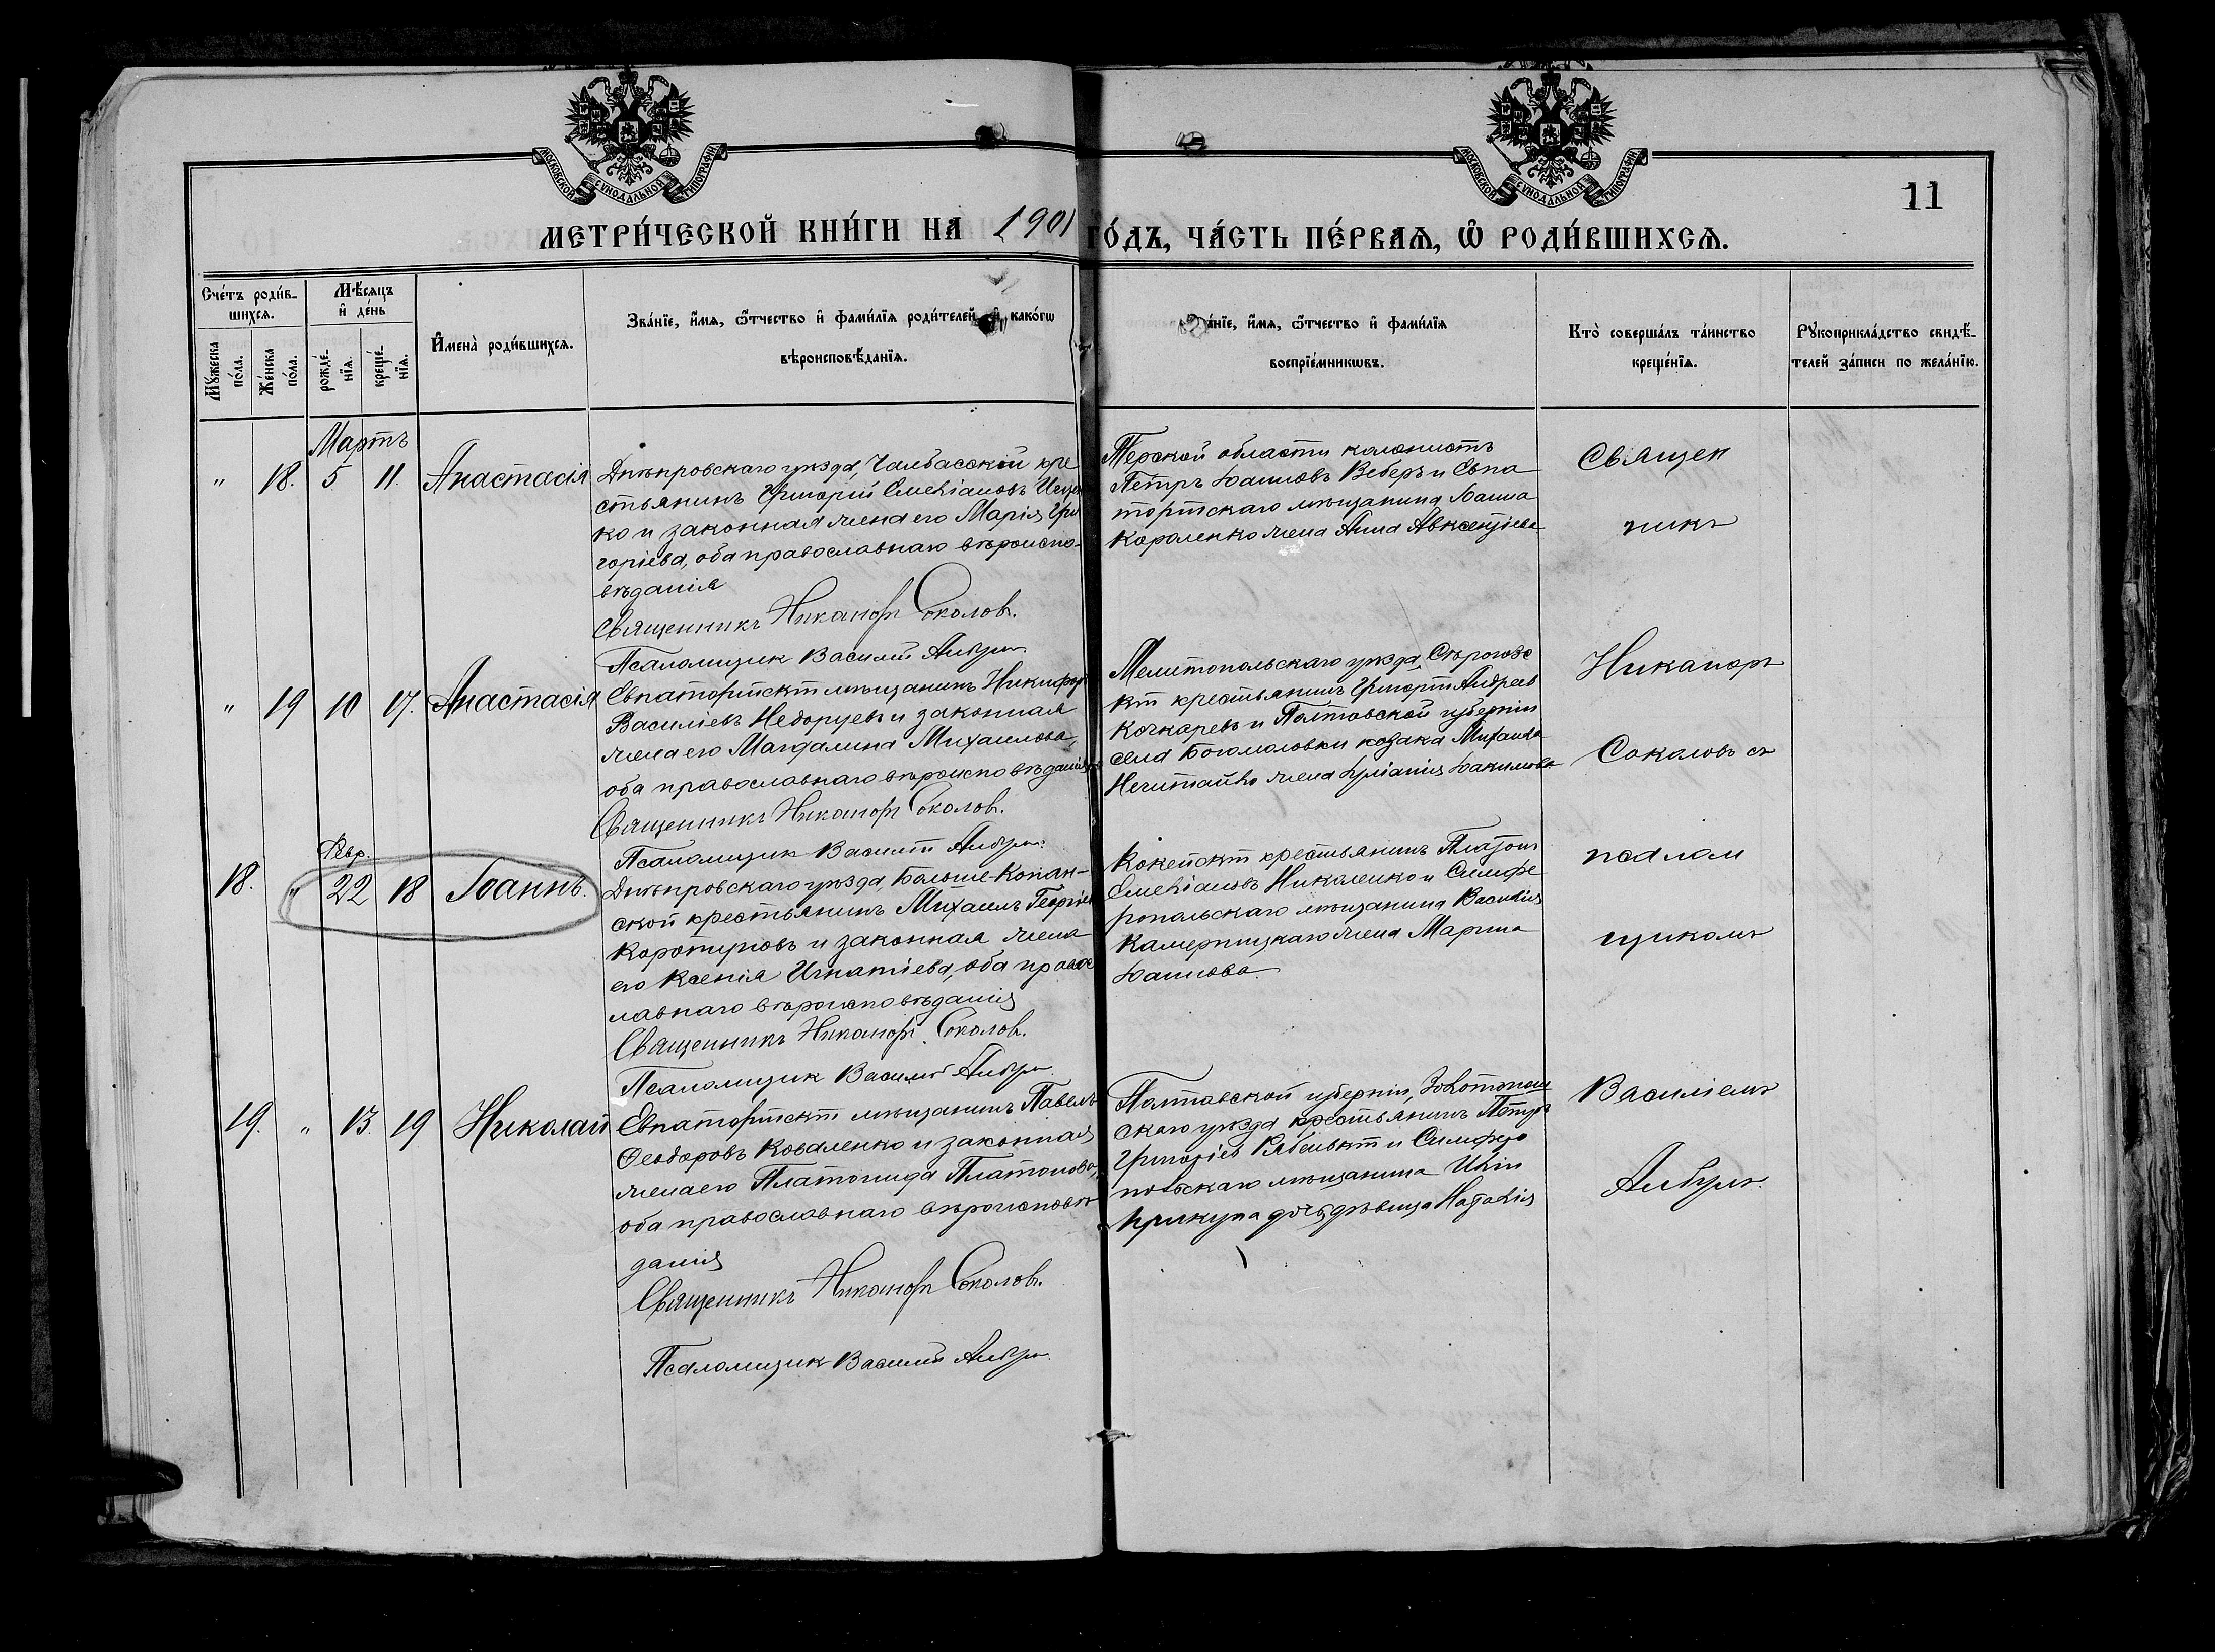 МОСКОВСКОЙ СУНОДАЛЬНОЙ ТИПОГРАФІИ
МОСКОВСКОЙ СУНОДАЛЬНОЙ ТИПОГРАФІИ
11
МЕТРИ́ЧЕСКОЙ КНИ́ГИ НА 1901 ГО́ДЪ, ЧА́СТЬ ПЕ́РВАѦ, Ѡ РОДИ́ВШИХСѦ.
Сче́тъ роди́в-
шихсѧ.
Мꙋжеска по́ла.
Же́нска по́ла.
Мѣ́сѧцъ
и де́нь
рожде́-
нїѧ.
креще́-
нїѧ.
Имена̀ роди́вшихсѧ.
Зва́нїе, и́мѧ, ѻ́тчество и фами́лїѧ роди́телей, и како́гѡ
вѣроисповѣ́данїѧ.
Зва́нїе, и́мѧ, ѻ́тчество и фами́лїѧ
воспрїе́мникѡвъ.
Кто̀ соверша́лъ та́инство
креще́нїѧ.
Рꙋкоприкла́дство свидѣ́-
телей за́писи по жела́нїю.
Мартъ
" 18. 5 11. Анастасія
Днѣпровскаго уѣзда, Чалбасской кре
стьянинъ Григорій Емеліановъ
ко и законная жена его Марія Гри
горіева, оба православнаго вѣроиспо-
вѣданія
Священникъ Никаноръ Соколовъ.
Псаломщик Василій
Терской области колонистъ
Петръ Іоанновъ Веберъ и Евпа
торійскаго мѣщанина Іоанна
Короленко жена Анна Авксентіева
Священ
никъ
" 19 10 17. Анастасія
Евпаторійскій мѣщанинъ Никифоръ
Василіевъ Недоруевъ и законная
жена его Магдалина Михаилова,
оба православнаго вѣроисповѣданія
Священникъ Никаноръ Соколовъ.
Псаломщик Василій
Мелитопольскаго уѣзда, Сѣрогоз
кій крестьянинъ Григорій Андреев
Кочкаревъ и Полтавской губерніи
села Богомоловки козака Михаила
Нечитайло жена Іуліанія Іакимова
Никаноръ
Соколовъ съ
Февр.
18. " 22 18 Іоаннъ.
Днѣпровскаго уѣзда, Больше-Копан-
ской крестьянинъ Михаилъ Георгіев
и законная жена
его Ксенія Игнатіева, оба правос
лавнаго вѣроисповѣданія
Священникъ Никаноръ Соколовъ.
Псаломщик Василій
крестьянинъ Платонъ
Емеліановъ Николенко и Симфе
ропольскаго мѣщанина Василія
Камерницкаго жена Марина
Іоаннова.
псалом
щикомъ
19. " 13. 19 Николай
Евпаторійскій мѣщанинъ Павелъ
Ѳеодоровъ Коваленко и законная
жена его Платонида Платонова,
оба православнаго вѣроисповѣ
данія
Священникъ Никаноръ Соколовъ.
Псаломщик Василій
Полтавской губерніи, Золотонош
скаго уѣзда крестьянинъ Петръ
Григоріев и Симферо
польскаго мѣщанина Иліи
дочь дѣвица Наталія
Василіемъ